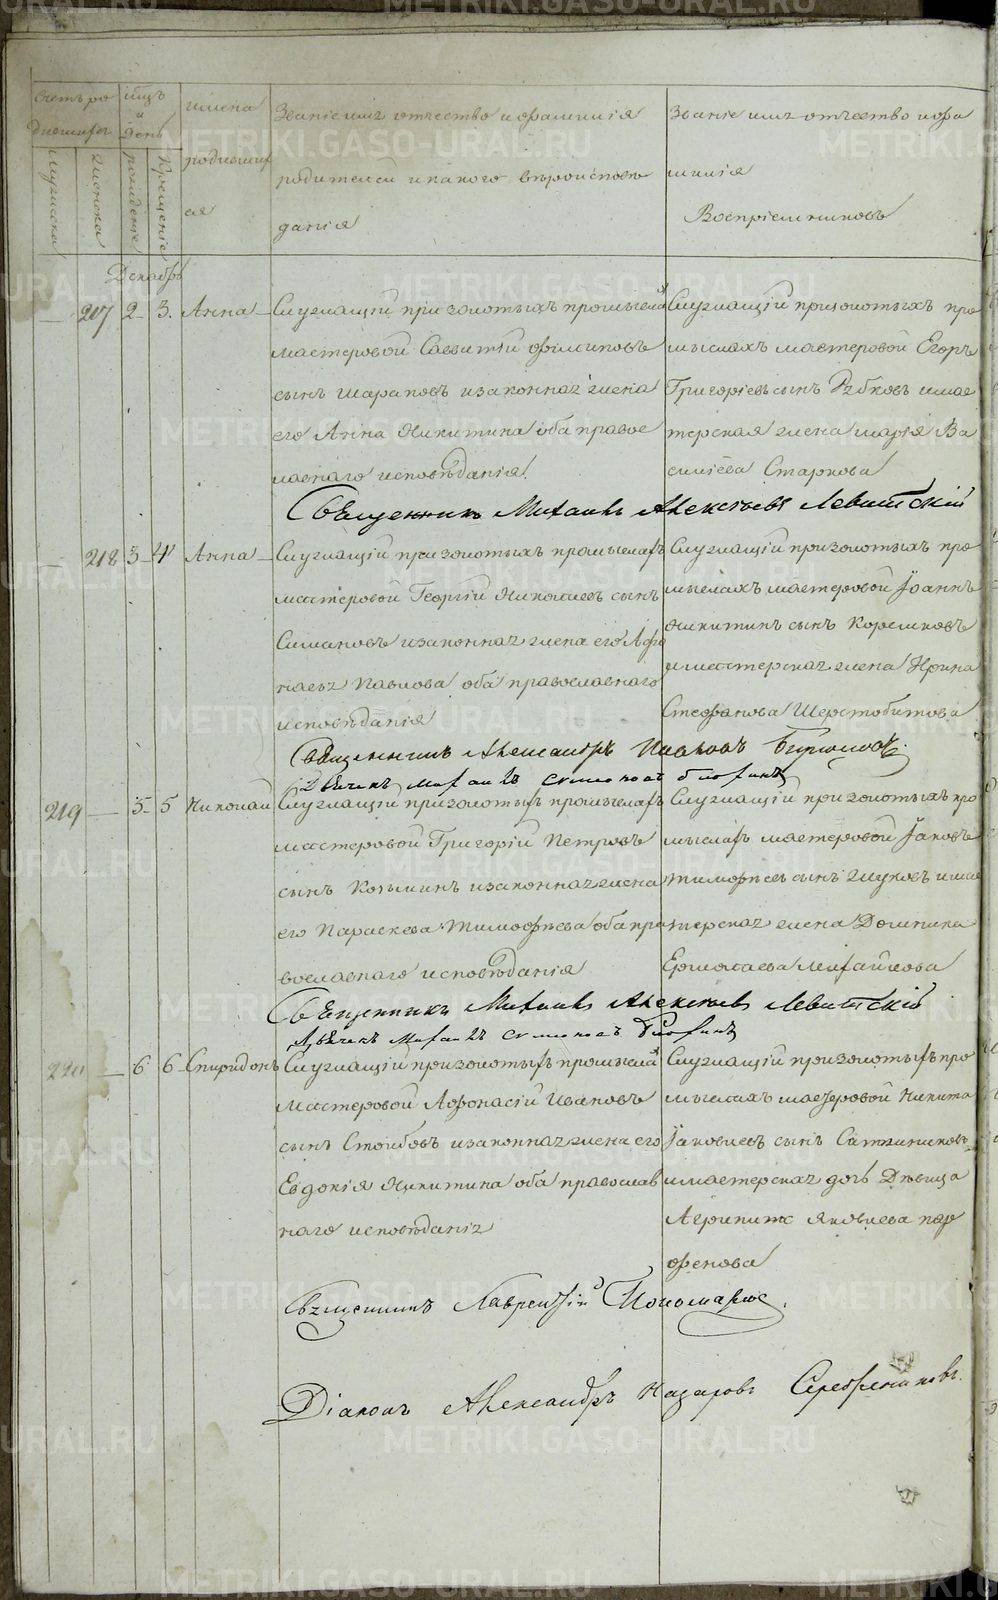 Счетъ ро
дившихся
мцъ
и
день
имена
родивших
ся
Званіе имя отчество и фамилія
родителей и какого вѣроисповѣ
данія
Званіе имя отчество и фа
милія
Воспріемниковъ
Мужеска
Женска
рожденіе
Крещеніе
Декабрь
207 2 3. Анна Служащій при золотыхъ промысла
мастеровой Савватій Филиповъ
сынъ Шараповъ и законная жена
его Анна Никитина оба правос
лавнаго исповѣданія.
Служащій при золотыхъ про
мыслахъ мастеровой Егоръ
Григорьевъ сынъ Рябковъ и мас
терская жена Марія Ва
силіева Старкова
Священникъ Михаилъ Алексѣевъ Левитскій
218 3 4 Анна Служащій при золотыхъ промыслахъ
мастеровой Георгій Николаевъ сынъ
Симановъ и законная жена его
Павлова оба православнаго
исповѣданія
Служащій при золотыхъ про
мыслахъ мастеровой Іоаннъ
Никитинъ сынъ Корелковъ
и мастерская жена Ирина
Стефанова Шерстобитова
Священникъ Александръ Павловъ
Дьячекъ Михаилъ
219 5 5 Николай Служащій при золотыхъ промыслахъ
мастеровой Григорій Петровъ
сынъ Козьминъ и законная жена
его Параскева Тимофѣева оба пра
вославнаго исповѣданія
Служащій при золотыхъ про
мыслахъ мастеровой Іаковъ
Тимофѣевъ сынъ Жуковъ и мас
терская жена Домника
Ермолаева Михайлова
Священникъ Михаилъ Алексѣевъ Левитскій
Дьячекъ Михаилъ
220 6 6 Спиридонъ Служащій при золотыхъ промысла
Мастеровой Афонасій Ивановъ
сынъ Столбовъ и законная жена его
Евдокія Никитина оба православ
наго исповѣданія
Служащій при золотыхъ про
мыслахъ мастеровой Никита
Іаковлевъ сынъ Сатинниковъ
и мастерская дочь Дѣвица
Агрипина Яковлева пар
фенова
Священникъ Лаврентій Пономаревъ.
Діаконъ Александръ Назаровъ Серебрениковъ.